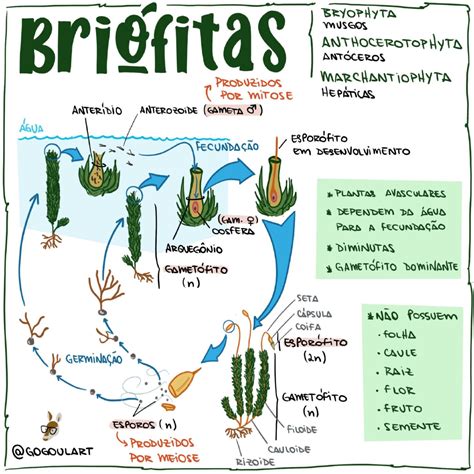 BRIÓFITAS
BRYOPHYTA
MUSGOS
ANTHOCEROTOPHYTA
ANTÓCEROS
MARCHANTIOPHYTA
HEPÁTICAS
PRODUZIDOS
POR MITOSE
ANTERÍDIO
ANTEROZOIDE (GAMETA ♂)
ÁGUA
FECUNDAÇÃO
ESPORÓFITO
EM DESENVOLVIMENTO
(GAM. ♀)
OOSFERA
ARQUEGÔNIO
GAMETÓFITO
(n)
* PLANTAS AVASCULARES
* DEPENDEM DA ÁGUA
PARA A FECUNDAÇÃO
* DIMINUTAS
* GAMETÓFITO DOMINANTE
SETA
CÁPSULA
COIFA
ESPORÓFITO
(2n)
GAMETÓFITO
(n)
FILOIDE
CAULOIDE
RIZOIDE
* NÃO POSSUEM
• FOLHA
• CAULE
• RAIZ
• FLOR
• FRUTO
• SEMENTE
GERMINAÇÃO
ESPOROS (n)
PRODUZIDOS
POR MEIOSE
@GOGOULART